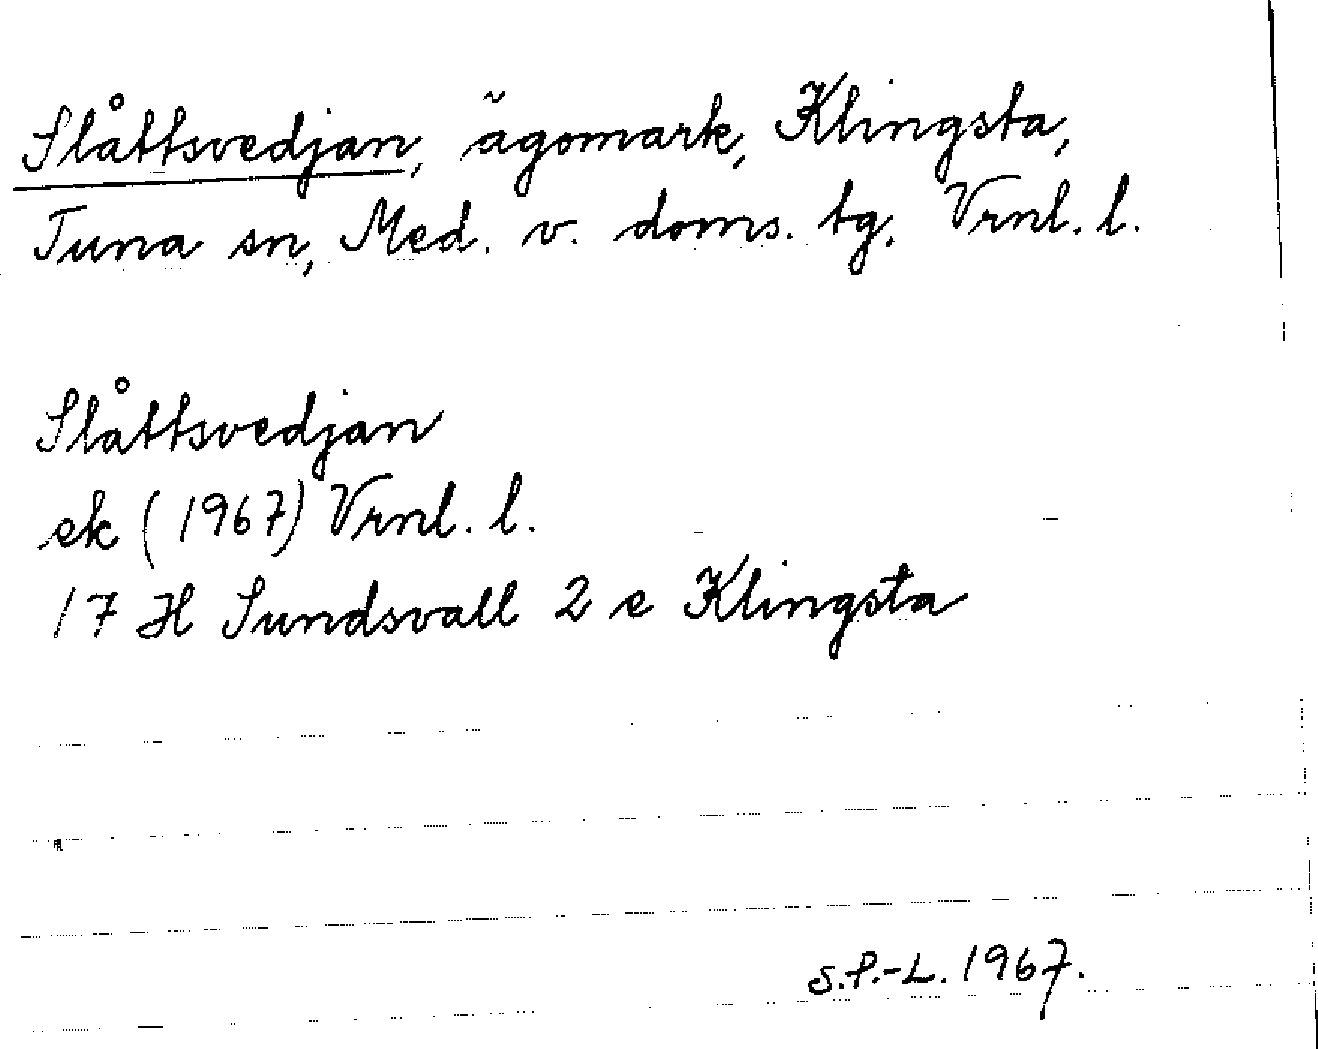 Slåttsvedjan, ägomark, Klingsta,
Tuna sn, Med. v. doms. tg, Vrnl. l.
Slåttsvedjan
ek (1967) Vrnl. l.
17 H Sundsvall 2 e Klingsta
S.P.-L. 1967.